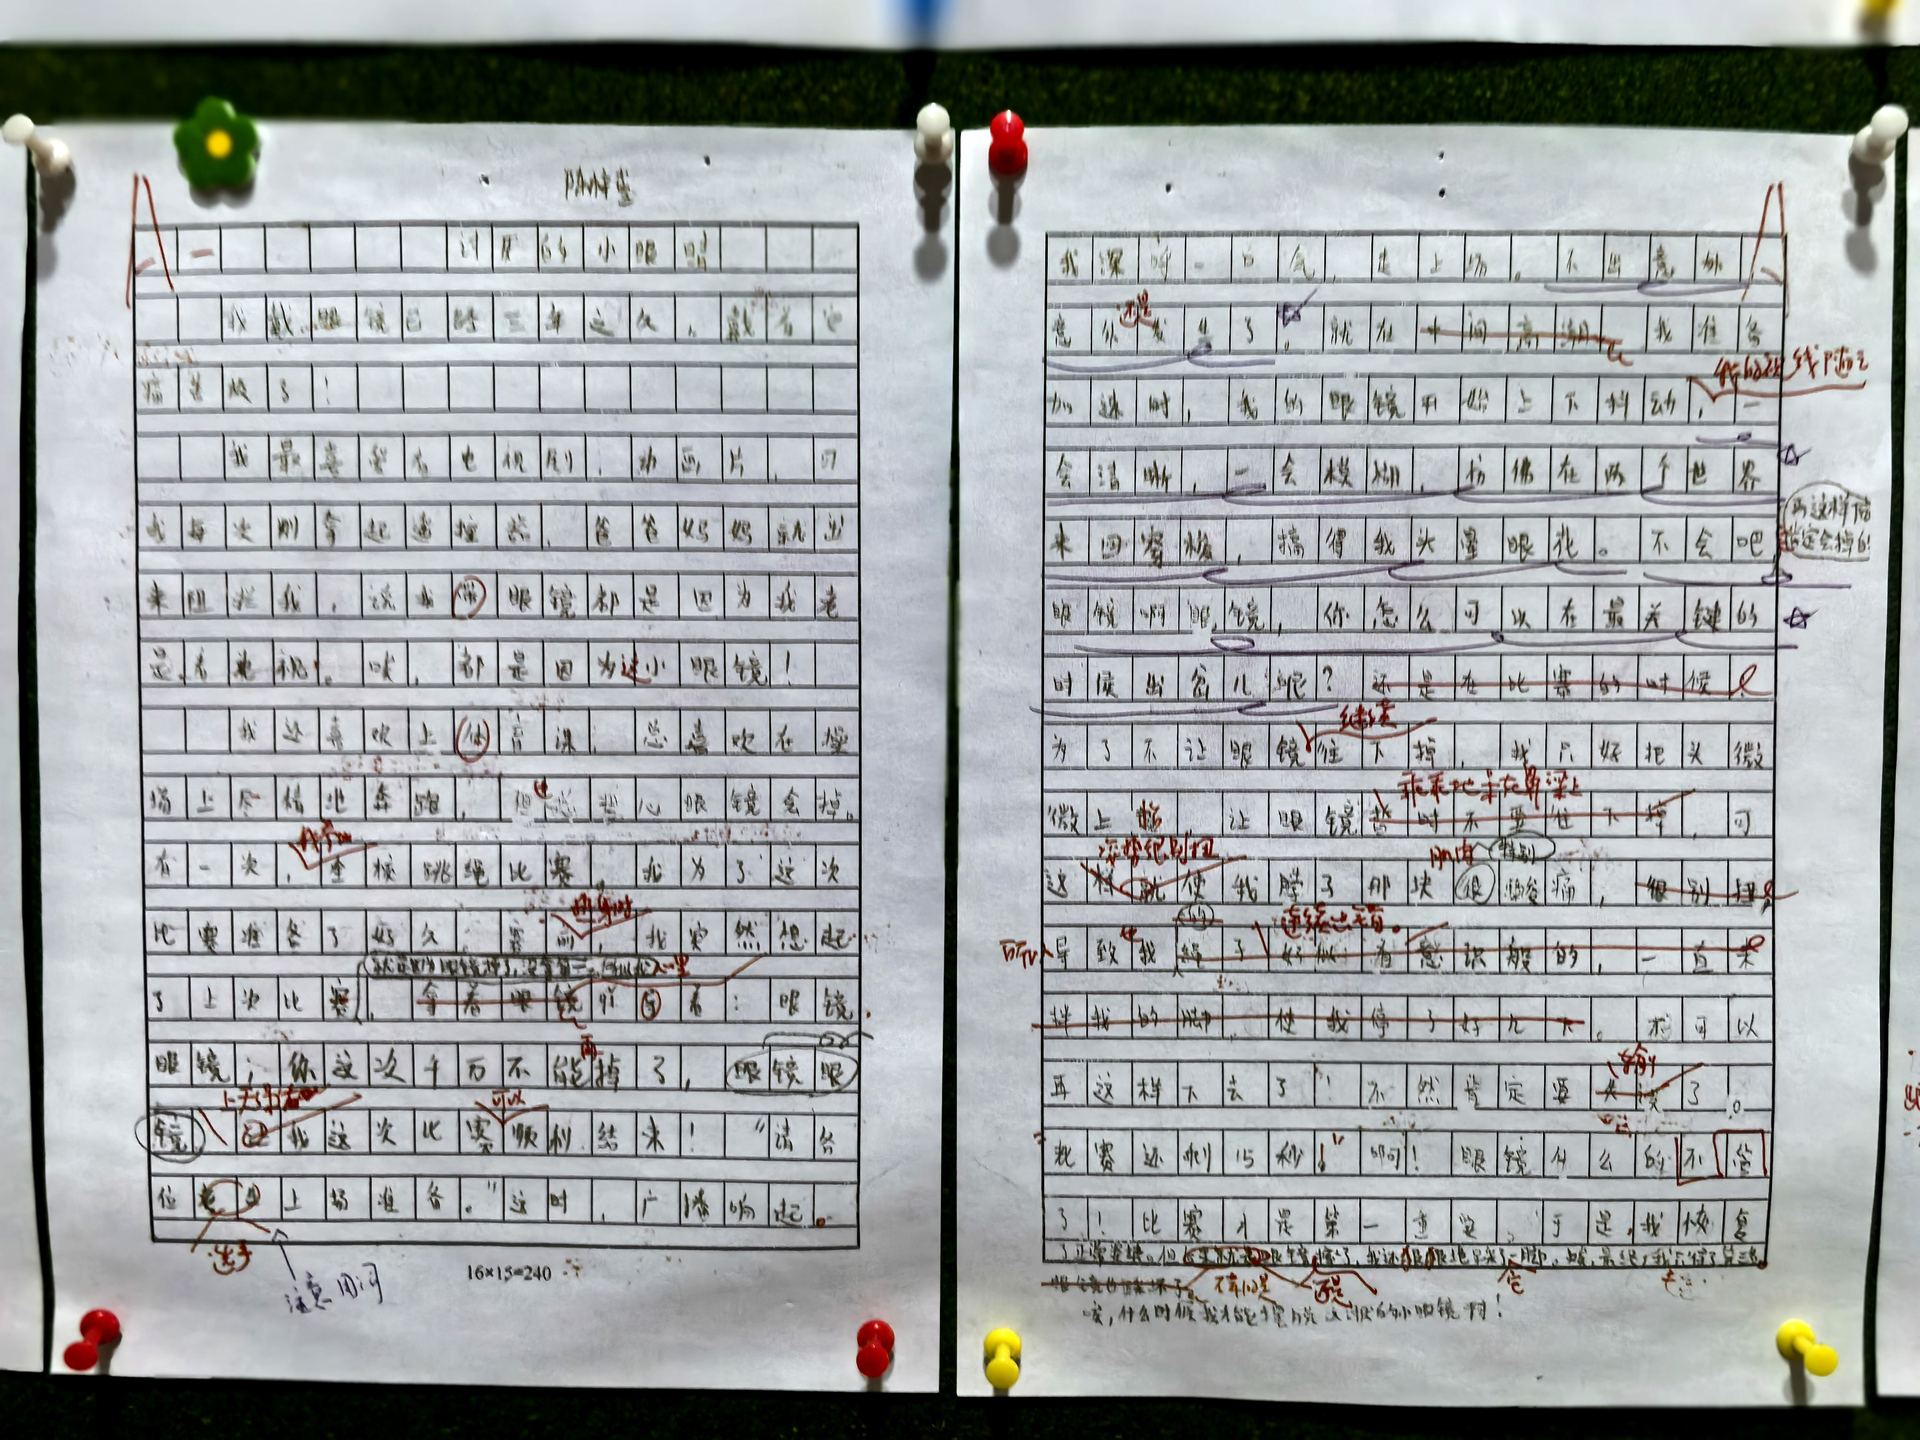 讨厌的小眼镜
我戴眼镜已经三年之久，戴着它
痛苦极了！
我最喜爱看电视剧，动画片，可
我每次刚拿起遥控器，爸爸妈妈就出
来阻拦我，说我带眼镜都是因为我老
是看电视。唉，都是因为这小眼镜！
我还喜欢上体育课，总喜欢在操
场上尽情地奔跑，但也总担心眼镜会掉。
有一次，学校跳绳比赛，我为了这次
比赛准备了好久，赛前，我突然想起
了上次比赛，拿着眼镜 看：眼镜
眼镜，你这次千万不能再掉了，眼镜眼
镜 我这次比赛可以顺利结束！“请各
位 上场准备。”这时，广播响起。
选手
注意用词
16×15=240
我深呼一口气，走上场。不出意外
意外还是发生了。就在中间高潮 我准备
我的视线随之
加速时，我的眼镜开始上下抖动，一
会清晰，一会模糊，仿佛在两个世界
来回穿梭，搞得我头晕眼花。不会吧
再这样下
肯定会掉的
眼镜啊眼镜，你怎么可以在最关键的
时候出岔儿呢？还是在比赛的时候
继续
为了不让眼镜往下掉，我只好把头微
乖乖地呆在鼻梁上
微上抬 让眼镜暂时不要往下掉，可
姿势很别扭
肌肉 特别
这样就使我脖子那块很酸痛，很别扭
连续出错。
所以导致我绳子好似有意识般的，一直来
绊我的脚，使我停了好几下。不可以
再这样下去了！不然肯定要 了。
“比赛还剩15秒！”啊！眼镜什么的不管
了！比赛才是第一重要，于是，我恢复
不幸的是
还是
唉，什么时候我才能摆脱这讨厌的小眼镜啊！